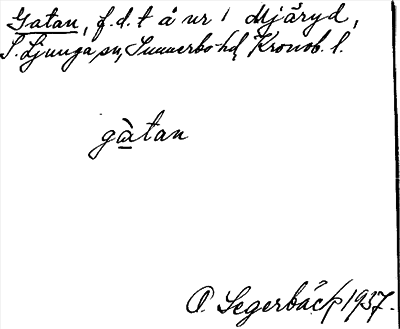 Gatan, f.d. t å nr 1 Mjäryd,
S. Ljunga sn, Sunnerbo hd, Kronob. l.
gàtan
P. Segerbäck 1937.